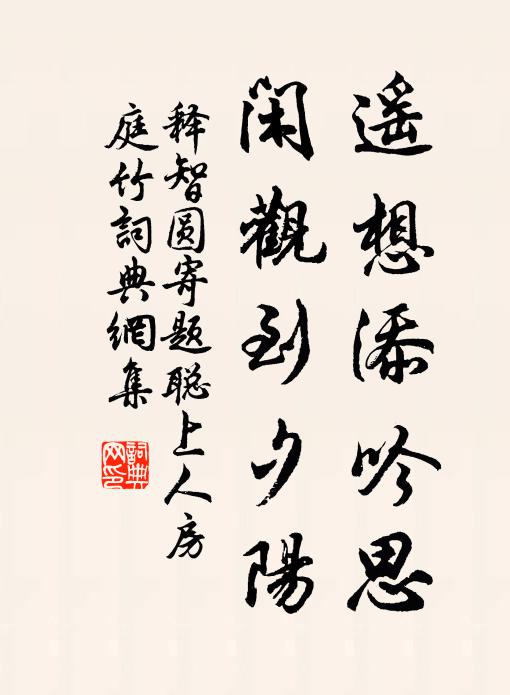 遥想添吟思
闲觀到夕陽
释智圆寄题聪上人房
庭竹詞典網集
詞典
网印